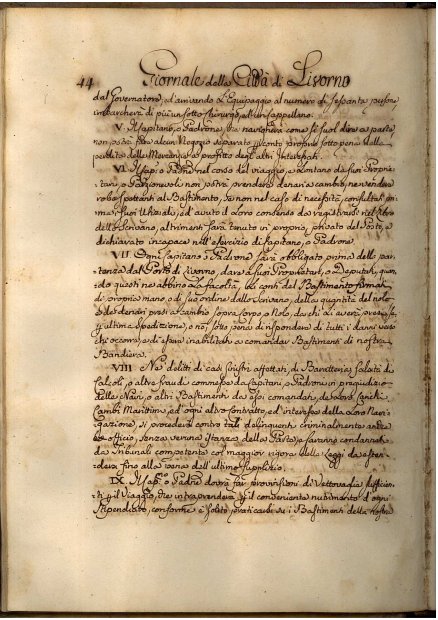 44 Giornale della Città di Livorno
dal Governatore, ed arrivando l'Equipaggio al numero di sessanta persone,
imbarcherà di più un sotto Chirurgo, ed un Cappellano.
V. Il Capitano, o Padrone, che navigherà come si suol dire a parte
non potrà fare alcun Negozio separato per conto proprio sotto pena della
perdita delle Mercanzie a profitto degli altri Interessati.
VI. Il Cap.º o Padne nel corso del viaggio, e lontano da suoi Proprie-
tarj, o Parzionevoli non potrà prendere danari a cambio, ne vendere
robe spettanti al Bastimento, se non nel caso di necessità, consultati pri-
ma i suoi Uffiziali, ed avuto il loro consenso da registrarsi nel libro
dello Scrivano, altrimenti sarà tenuto in proprio, privato del Posto, e
dichiarato incapace nell'esercizio di Capitano, o Padrone.
VII. Ogni Capitano, o Padrone sarà obbligato prima della par-
tenza dal Porto di Livorno, dare a suoi Proprietarj, o Deputati, quan-
do questi ne abbino la facoltà, i conti del Bastimento firmati
di propria mano, o di suo ordine dallo Scrivano, della quantità del nolo
e de denari presi a cambio sopra corpo, o Nolo, da chi gli averà presi, se
ultima spedizione, o no, sotto pena di rispondere di tutti i danni
che occorra, e di essere inabilitati a comandar Bastimenti di nostra
Bandiera.
VIII. Ne delitti di casi sinistri affettati, di Baratteria, falsità di
Calcoli, o altre fraudi commesse da Capitani, o Padroni in pregiudizio
delle Navi, o altri Bastimenti da essi comandati, de loro Carichi
Cambi Marittimi, ed ogni altro contratto, ed interesse della loro Navi-
gazione, si procederà contro tali delinquenti criminalmente anche
ex officio, senza veruna Istanza della Parte, e saranno condannati
da Tribunali competenti col maggior rigore delle Leggi da esten-
dersi fino alla pena dell'ultimo supplizio.
IX. Il Cap.no o Padne dovrà far provvisioni di Vettovaglie sufficien-
ti per il Viaggio, che intraprenderà per il conveniente nutrimento d'ogni
Stipendiato, conforme è solito praticarsi ne i Bastimenti della Nostra